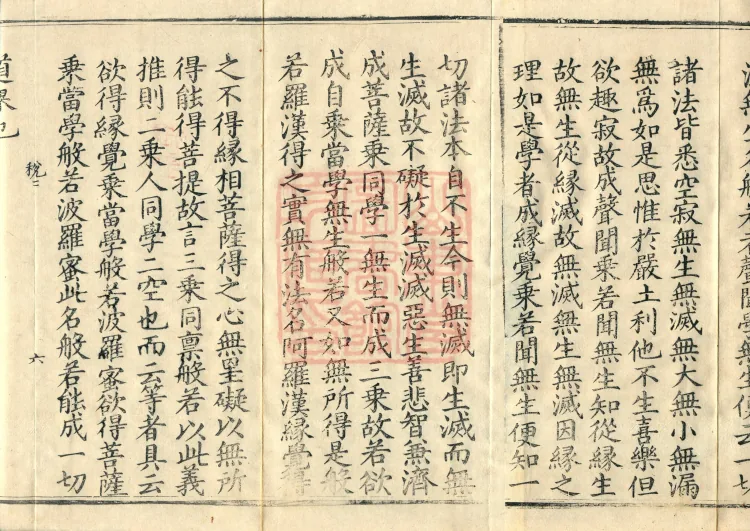 諸法皆悉空寂無生無滅無大無小無漏
無爲如是思惟於嚴土利他不生喜樂但
欲趣寂故成聲聞乘若聞無生知從緣生
故無生從緣滅故無滅無生無滅因緣之
理如是學者成緣覺乘若聞無生便知一
切諸法本自不生今則無滅即生滅而無
生滅故不礙於生滅滅惡生善悲智兼濟
成菩薩乘同學一無生而成三乘故若欲
成自乘當學無生般若又如無所得是般
若羅漢得之實無有法名阿羅漢緣覺得
之不得緣相菩薩得之心無罣礙以無所
得能得菩提故言三乘同稟般若以此義
推則二乘人同學二空也而云等者具云
欲得緣覺乘當學般若波羅蜜欲得菩薩
乘當學般若波羅蜜此名般若能成一切
稅二
六